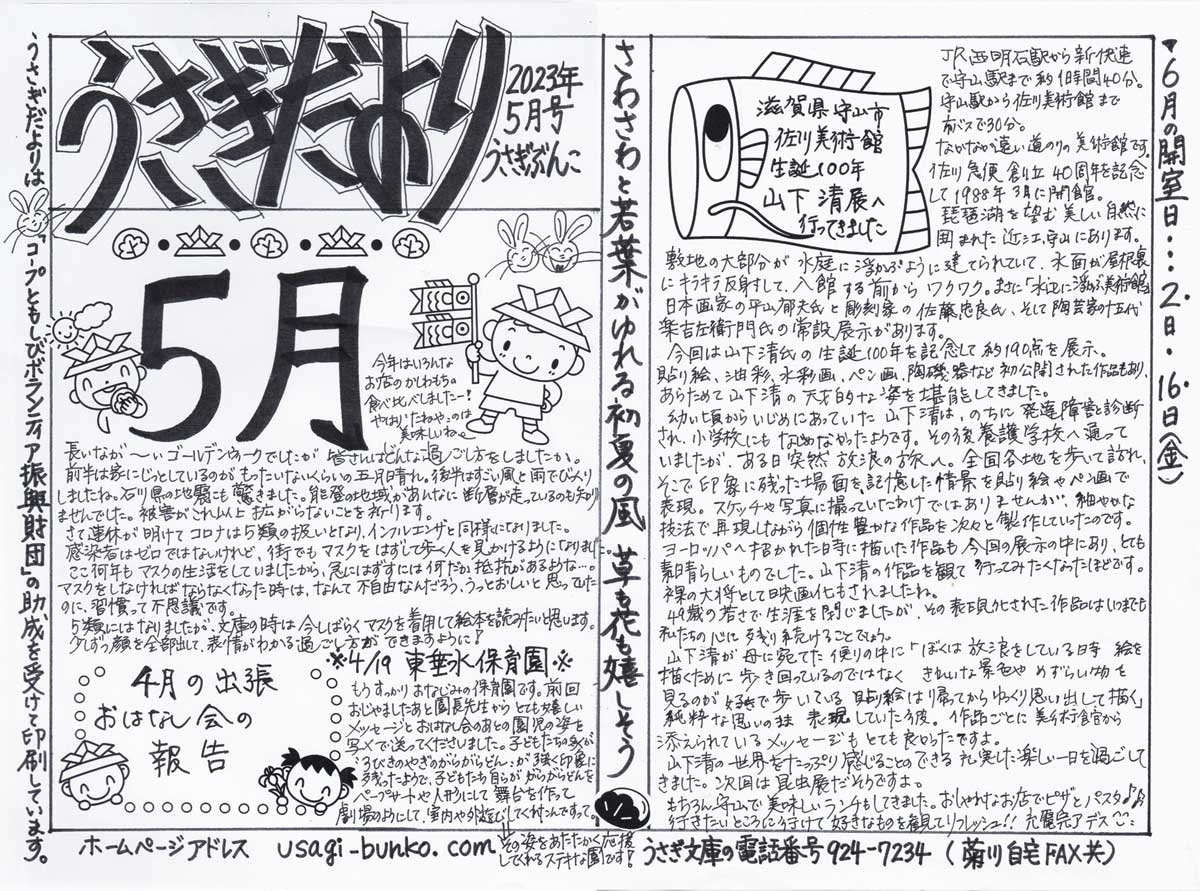 うさぎだより
2023年
5月号
うさぎぶんこ
5月
今年はいろんな
お店のかしわもちの
食べ比べしましたー!
やはり たねやのは
美味しいね。
長いなが〜いゴールデンウィークでしたが 皆さんはどんな過ごし方をしましたか。
前半は家にじっとしているのが もったいないくらいの五月晴れ。後半はすごい風と雨でびっくり
しましたね。石川県の地震にも驚きました。能登の地域があんなに断層が走っているのも知り
ませんでした。被害がこれ以上 拡がらないことを祈ります。
さて連休が明けてコロナは5類の扱いとなり、インフルエンザと同様になりました。
感染者はゼロではないけれど、街でもマスクをはずして歩く人を見かけるようになりました。
ここ何年もマスクの生活をしていましたから、急にはずすには何だか抵抗があるな…。
マスクをしなければならなくなった時は、なんて不自由なんだろう、うっとおしいと思ってたた
のに、習慣って不思議です。
5類にはなりましたが、文庫の時は今しばらくマスクを着用して絵本を読みたいと思います。
少しずつ顔を全部出して、表情がわかる過ごし方ができますように!
4月の出張
おはなし会の
報告
※4/19 東垂水保育園※
もうすっかりおなじみの保育園です。前回
おじゃましたあと園長先生からとても嬉しい
メッセージとおはなし会のあとの園児の姿を
写メで送ってくださいました。子どもたちの多くが
「3びきのやぎのがらがらどん」が強く印象に
残ったようで、子どもたち自らががらがらどんを
ペープサートや人形にして舞台を作って
劇場のようにして、室内や外遊びしてくれたんですって。
その姿をあたたかく応援
してくれるステキな園です!
さわさわと若葉がゆれる初夏の風 草も花も嬉しそう
滋賀県守山市
佐川美術館
生誕100年
山下清展へ
行ってきました
JR西明石駅から新快速
で守山駅まで約1時間40分。
守山駅から佐川美術館まで
市バスで30分。
なかなか遠い道のりの美術館です。
佐川急便創立40周年を記念
して1988年3月に開館。
琵琶湖を望む美しい自然に
囲まれた近江、守山にあります。
敷地の大部分が水庭に浮かぶように建てられていて、水面が屋根裏
にキラキラ反射して、入館する前からワクワク。まさに「水辺に浮かぶ美術館」
日本画家の平山郁夫氏と彫刻家の佐藤忠良氏、そして陶芸家の十五代
楽吉左衛門氏の常設展示があります。
今回は山下清氏の生誕100年を記念して約190点を展示。
貼り絵、油彩、水彩画、ペン画、陶磁器など初公開された作品もあり、
あらためて山下清の天才的な姿を堪能してきました。
幼い頃からいじめにあっていた山下清は、のちに発達障害と診断
され、小学校にもなじめなかったようです。その後養護学校へ通って
いましたが、ある日突然放浪の旅へ。全国各地を歩いて訪れ、
そこで印象に残った場面を記憶した情景を貼り絵やペン画で
表現。スケッチや写真に撮っていたわけではありませんが、細やかな
技法で再現しながら個性豊かな作品を次々と製作していったのです。
ヨーロッパへ招かれた時に描いた作品も今回の展示の中にあり、とても
素晴らしいものでした。山下清の作品を観て行ってみたくなったほどです。
裸の大将として映画化もされましたね。
49歳の若さで生涯を閉じましたが、その表現化された作品はいつまでも
私たちの心に残り続けることでしょう。
山下清が母に宛てた便りの中に「ぼくは放浪をしている時 絵を
描くために歩き回っているのではなく きれいな景色や めずらしい物を
見るのが好きで歩いている 貼絵は帰ってからゆっくり思い出して描く」
純粋な思いのまま表現していた今後。作品ごとに美術館から
添えられているメッセージもとても良かったですよ。
山下清の世界をたっぷり感じることのできる充実した楽しい一日を過ごして
きました。次回は昆虫展だそうですよ。
もちろん、守山で美味しいランチもしてきました。おしゃれなお店でピザとパスタ♪♪
行きたいところに行けて好きなものを観てリフレッシュ!! 充電完了デス
▼6月の開室日…2日・16日(金)
うさぎだよりは「コープともしびボランティア振興財団」の助成を受けて印刷しています。
ホームページアドレス usagi-bunko.com
うさぎ文庫の電話番号 924-7234 (菊川自宅FAX共)